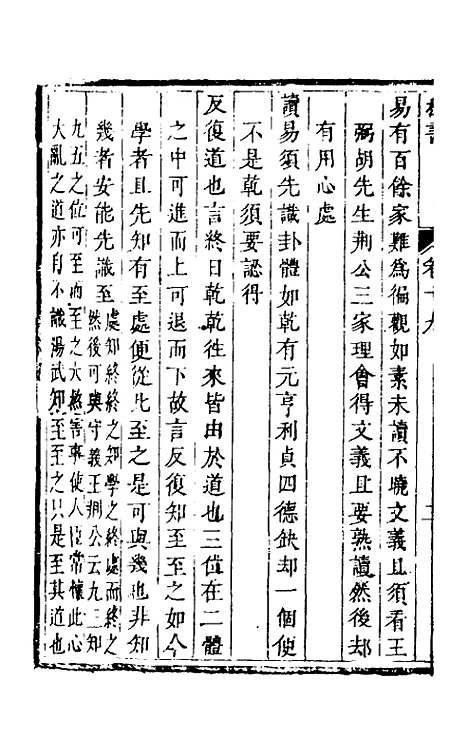 卷十九
易有百餘家難為徧觀如素未讀不曉文義且須看王
弼胡先生荆公三家理會得文義且要熟讀然後却
有用心處
讀易須先識卦體如乾有元亨利貞四德缺却一個便
不是乾須要認得
反復道也言終日乾乾往來皆由於道也三位在二體
之中可進而上可退而下故言反復知至至之如今
學者且先知有至處便從此至之是可與幾也非知
幾者安能先識至處知終終之知學之終處而終之
然後可與守義王荆公云九三知
九五之位可至而至之大煞害事使人臣常懷此心
大亂之道亦自不識湯武知至至之只是至其道也